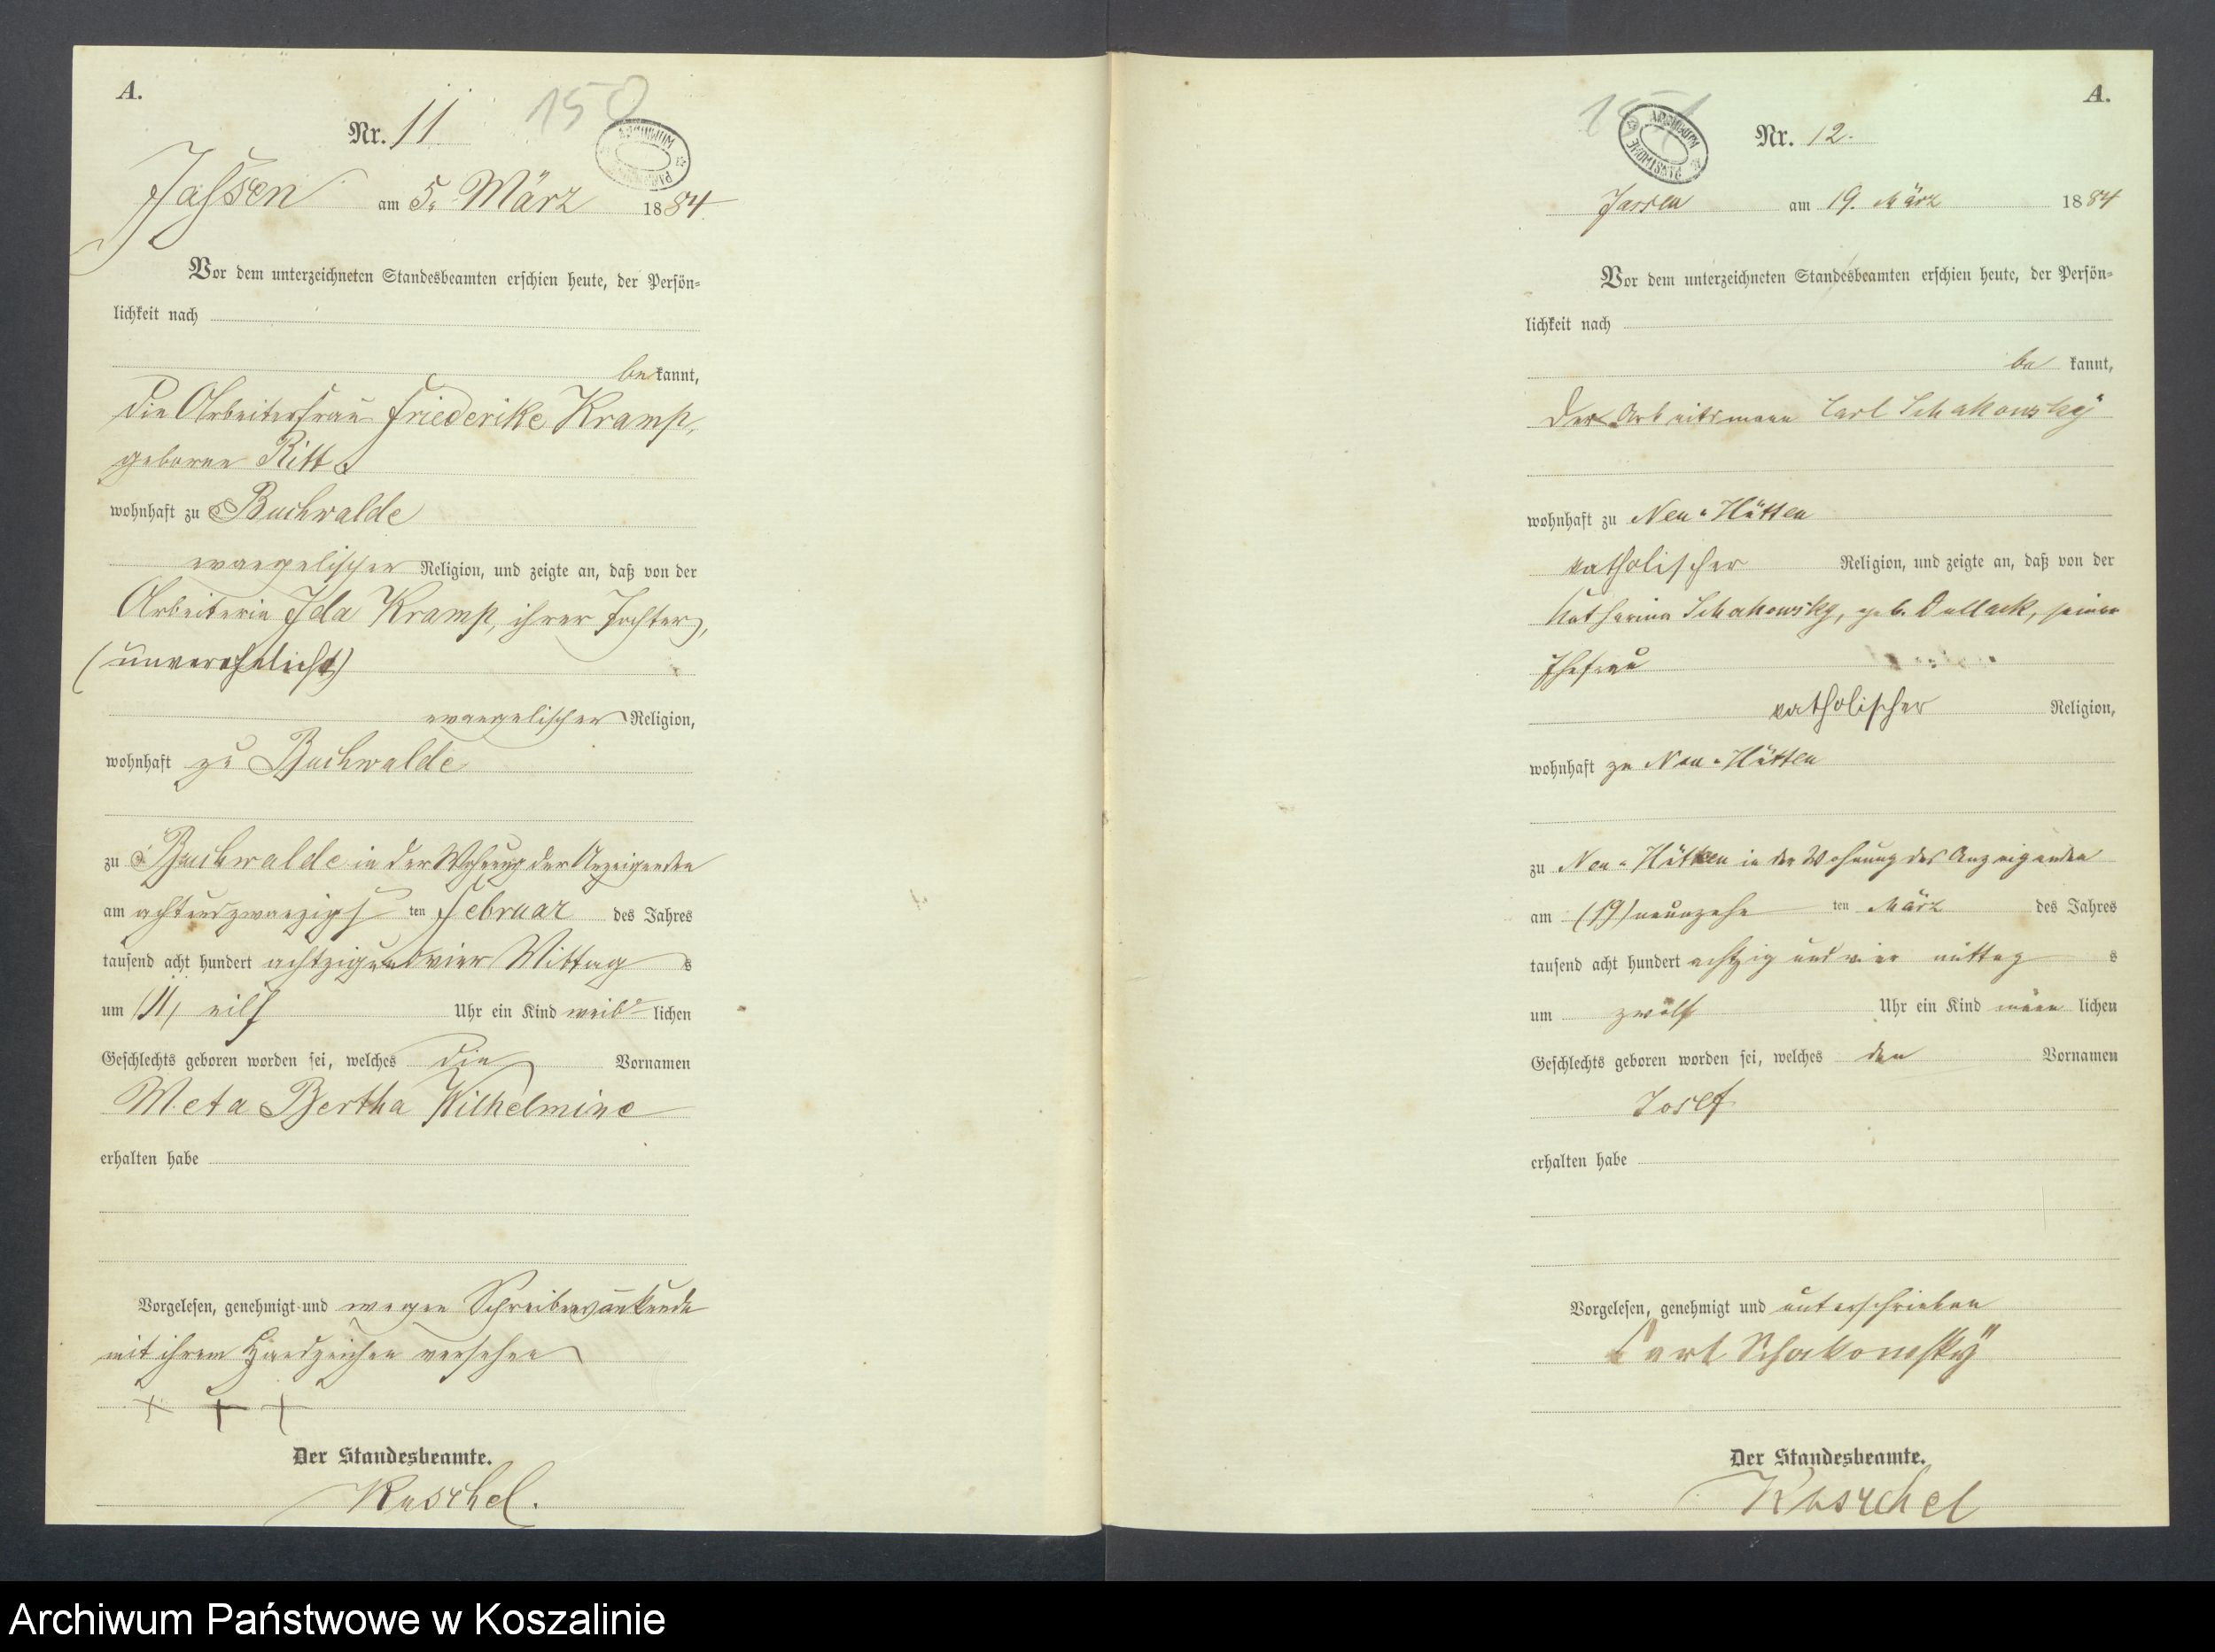 A.
150
Nr. 11
ARCHIWUM
Jassen am 5. März 1884.
Vor dem unterzeichneten Standesbeamten erschien heute, der Persön=
lichkeit nach
be kannt,
die Arbeiterfrau Friederike Kramp,
geborne Ritt
wohnhaft zu Buchwalde
evangelischer Religion, und zeigte an, daß von der
Arbeiterin Ida Kramp, ihrer Tochter,
(unverehelicht)
evangelischer Religion,
wohnhaft zu Buchwalde
zu Buchwalde in der Wohnung der Anzeigenden
am achtundzwanzigs ten Februar des Jahres
tausend acht hundert achtzig und vier Mittag s
um (11) eilf Uhr ein Kind weib lichen
Geschlechts geboren worden sei, welches die Vornamen
Meta Bertha Wilhelmine
erhalten habe
Vorgelesen, genehmigt und wegen Schreibensunkunde
mit ihrem Handzeichen versehen
+ + +
Der Standesbeamte.
Kuschel.
A.
151
ARCHIWUM PAŃSTWOWE
Nr. 12.
Jassen am 19. März 1884
Vor dem unterzeichneten Standesbeamten erschien heute, der Persön=
lichkeit nach
be kannt,
Der Arbeitsmann Carl Schakowsky
wohnhaft zu Neu-Hütten
katholischer Religion, und zeigte an, daß von der
Katharina Schakowsky, geb. Dullack, seiner
Ehefrau
katholischer Religion,
wohnhaft zu Neu-Hütten
zu Neu-Hütten in der Wohnung des Anzeigenden
am (19) neunzehn ten März des Jahres
tausend acht hundert achtzig und vier mittag s
um zwölf Uhr ein Kind männ lichen
Geschlechts geboren worden sei, welches den Vornamen
Josef
erhalten habe
Vorgelesen, genehmigt und unterschrieben
Carl Schakowsky
Der Standesbeamte.
Kuschel
Archiwum Państwowe w Koszalinie